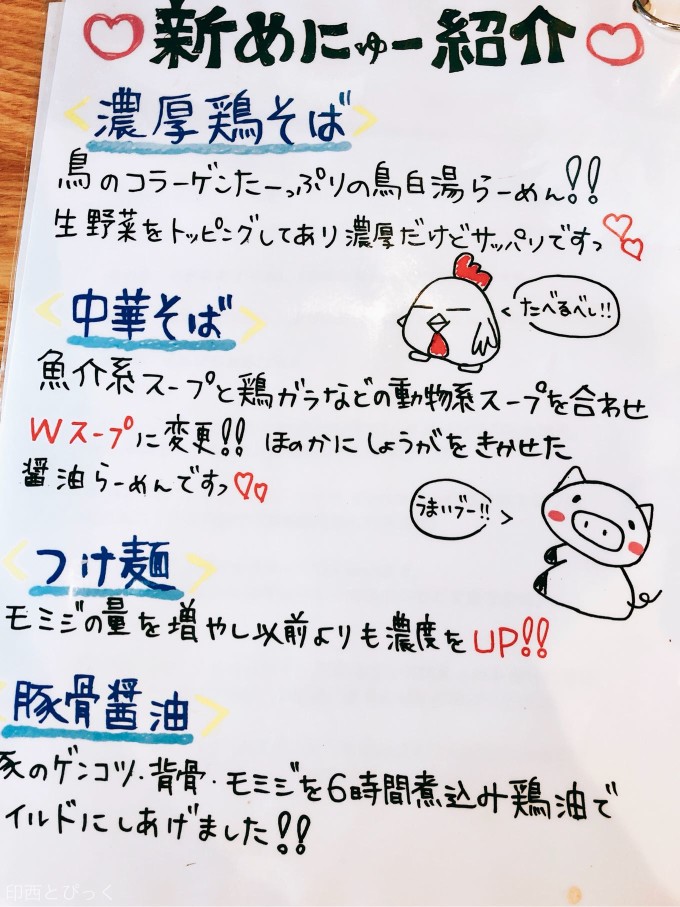 新めにゅー紹介
濃厚鶏そば
鳥のコラーゲンたーっぷりの鳥白湯らーめん!!
生野菜をトッピングしてあり濃厚だけどサッパリですっ
たべるべし!!
中華そば
魚介系スープと鶏ガラなどの動物系スープを合わせ
Wスープに変更!! ほのかにしょうがをきかせた
醤油らーめんですっ
うまいブー!!
つけ麺
モミジの量を増やし以前よりも濃度をUP!!
豚骨醤油
豚のゲンコツ・背骨・モミジを6時間煮込み鶏油で
イルドにしあげました!!
印西とぴっく